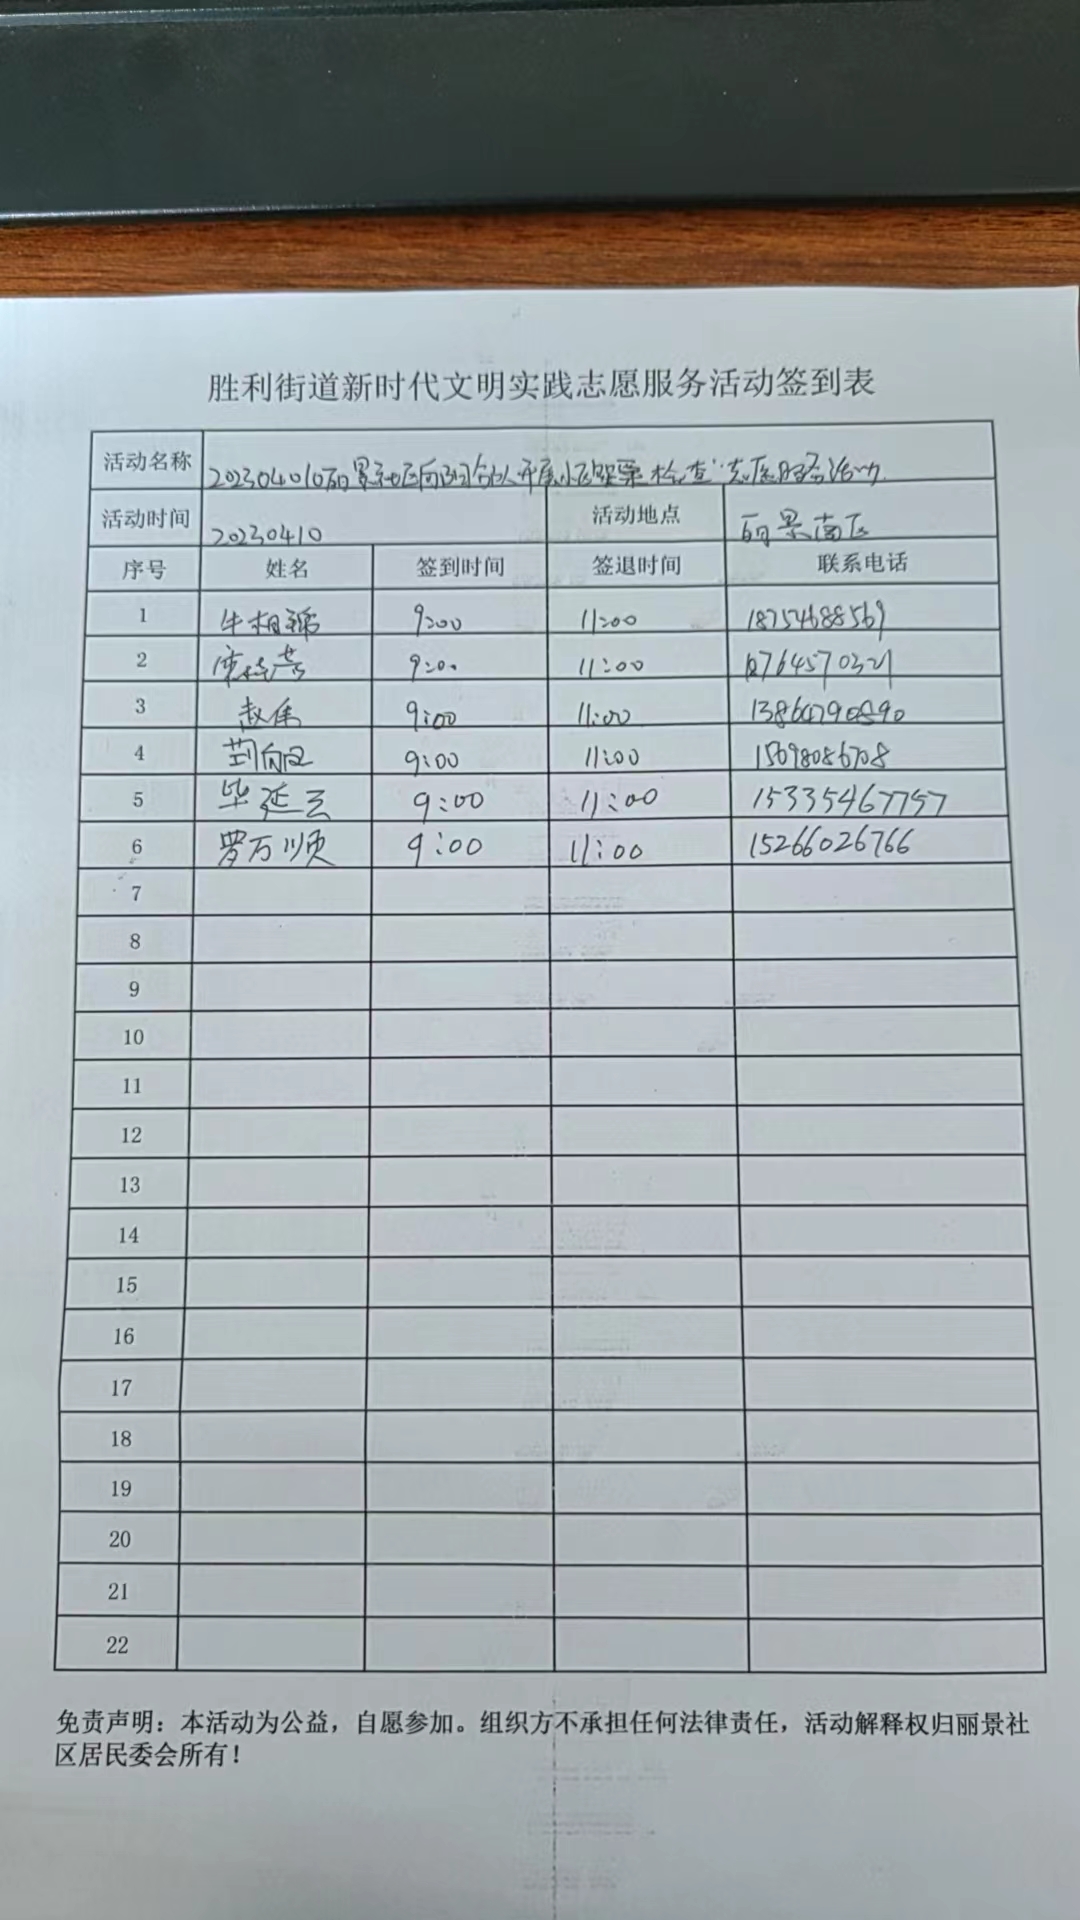 胜利街道新时代文明实践志愿服务活动签到表
活动名称 20230410丽景社区 开展小区 检查"志愿服务活动
活动时间 20230410 活动地点 丽景南区
序号 姓名 签到时间 签退时间 联系电话
1 牛相 9:00 11:00 18754688569
2 9:00 11:00 18764570321
3 赵伟 9:00 11:00 13864790890
4 荆向 9:00 11:00 15098086708
5 毕延云 9:00 11:00 15335467757
6 罗万顺 9:00 11:00 15266026766
7
8
9
10
11
12
13
14
15
16
17
18
19
20
21
22
免责声明：本活动为公益，自愿参加。组织方不承担任何法律责任，活动解释权归丽景社
区居民委会所有！